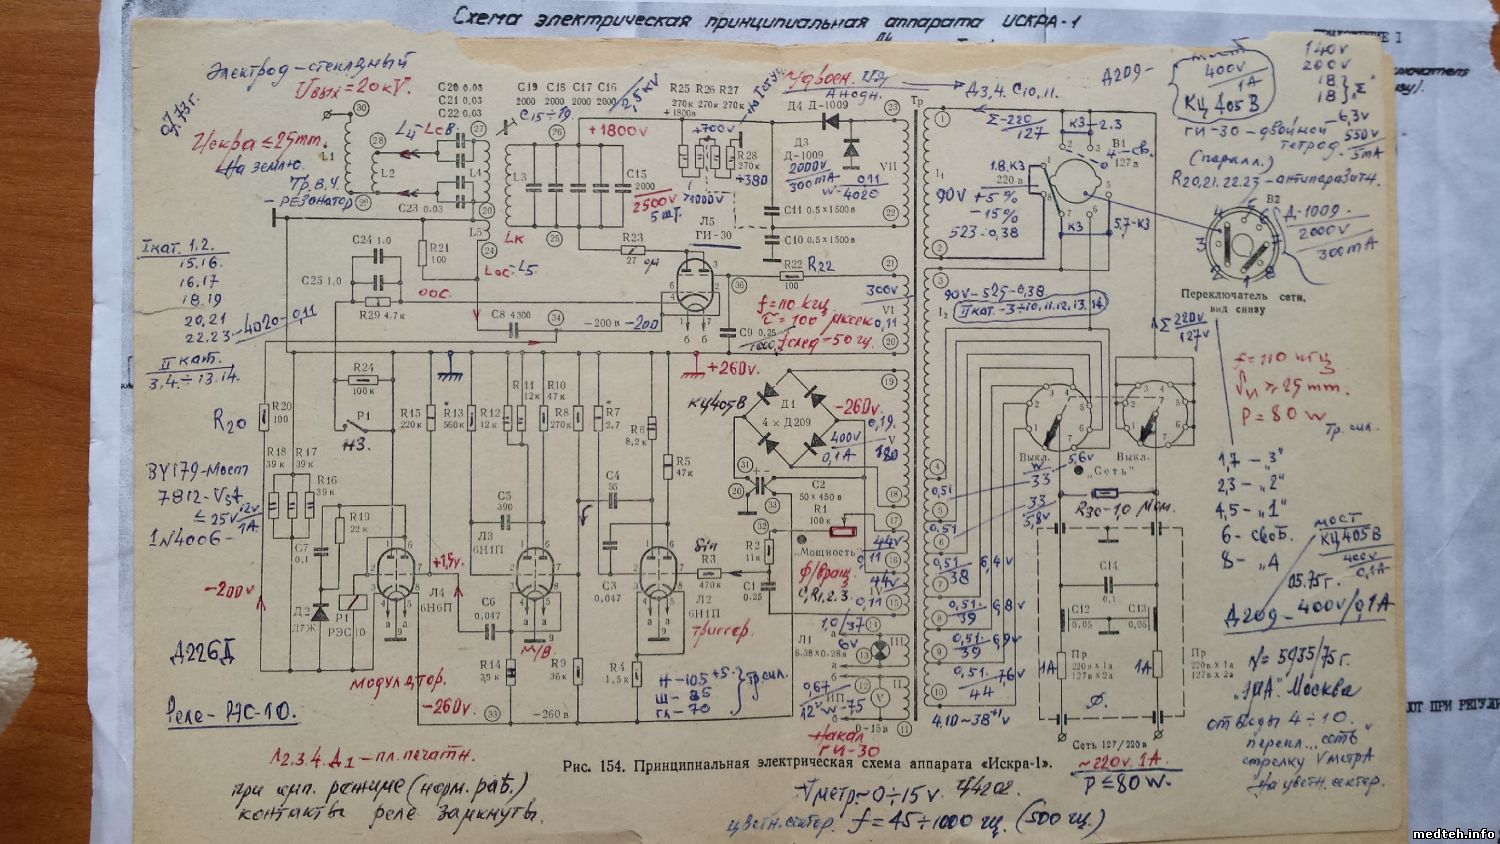 Схема электрическая принципиальная аппарата ИСКРА-1
Электрод-стеклянный
Uвых=20кV.
Искра ≤25mm.
На землю.
Тр. В.Ч.
-РЕЗОНАТОР
C20 0.03
C21 0.03
C22 0.03
C19 C18 C17 C16
2000 2000 2000 2000
C15÷19
2,5кV
R25 R26 R27
270к 270к 270к
+1800V
+1800v
+700v
R28
270к
+380
Удвоен.
Анодн.
Д4 Д-1009
Д3
Д-1009
2000V
300mA
Д3,4. C10,11.
Д209-
мост
400V
1A
КЦ405В
140v
200v
18
18
6,3v
550v
5mA
ГИ-30-двойной
тетрод
(паралл.)
R20,21,22,23-антипаразитн.
Тр
VII
0,11
W-4020
Σ-220
127
К3-2.3
В1
127 в
4-св.
1.8.К3
220 в
90V +5%
-15%
523-0,38
К3
5,7-К3
В2
Д-1009-
2000V
300mA
Переключатель сети,
вид снизу
L1
L2
L4
L3
L5
C23 0,03
C15
2000
2500V
5 шт.
Lк
Lос-L5
Л5
ГИ-30
C11 0.5×1500в
C10 0.5×1500в
Iкат. 1.2.
15,16.
16,17
18.19
20,21
22.23-4020-0,11
II кат.
3,4.÷13.14.
C24 1.0
C25 1.0
R29 4.7к
R21
100
оос.
R23
27
C8 4300
-200 в
-200
R22
100
R22
f=110 кгц
τ=100 мксек
fслед=50гц.
C9 0,25
300V
VI
0,11
90V-525-0,38
II кат.-3÷10,11.12,13,14.
Σ 220V
127v
f=110 кгц
≥25mm.
P=80W
Тр. сил.
+260v.
R24
100к
P1
НЗ.
R20
R20
100
R18
39к
R17
39к
R16
39к
R19
22к
C7
0,1
R15
220к
R13
560к
R12
12к
R11
12к
R10
47к
R8
270к
R7
2,7
R6
8,2к
R5
47к
КЦ405В
Д1
4×Д209
-260v.
400V
0,1A
0,19.
V
180
BY179-Мост
7812-Vst
≤25v
12v
1A
1N4006-
-200v
Д2
Д7Ж
P1
РЭС10
Д226Д
Реле-РЭС-10.
+1,5v.
Л4
6Н6П
модулятор.
-260v.
C6
0,047
C5
390
Л3
6Н1П
М/В.
R14
3,9к
R9
36к
C4
56
C3
0,047
Л2
6Н1П
триггер.
R4
1,5к
-260 в
R3
470к
R2
11к
C1
0.25
C2
50×450 в
R1
100к
„Мощность“
ф/вращ
C1R1,2.3.
44v
0,11
44v
0,11
1,0/37
6v
Л1
6.3В×0.28а
III
0,67
12v W-75
ИП
0-15в
V
Накал
ГИ-30
Н-105+5
Ш-85
гл-70
Тр сил.
0,51
0,51
0,51
38
6,4v
0,51.
39
6,8v
0,51.
39
6,9v
0,51.
44
7,6v
4.10~38
W
33
5,6v
33
5,8v
Выкл.
Выкл.
„Сеть“
R30-1,0 Мом.
C14
0,1
C12
0.05
C13
0,05
Пр
220в×1а
127в×2а
1А
1А
Пр
220в×1а
127в×2а
Сеть 127/220 в
~220v. 1A
P≤80W.
1,7 - „3“
2,3 - „2“
4,5 - „1“
6 - своб.
8 - „А
мост
КЦ405В
400v
0,1А
05.75г.
Д209-400v/0,1А
№=5935/75г.
„ЭМА“. Москва
отводы 4÷10.
перекл... сеть
стрелку Vметра
на цветн. сектор.
Л2.3.4. Д1-пл. печатн.
при имп. режиме (норм. раб.)
контакты реле замкнуты.
Рис. 154. Принципиальная электрическая схема аппарата «Искра-1».
Vметр~0÷15v.
цветн. сектор. f=45÷1000 гц. (500 гц.)
medteh.info